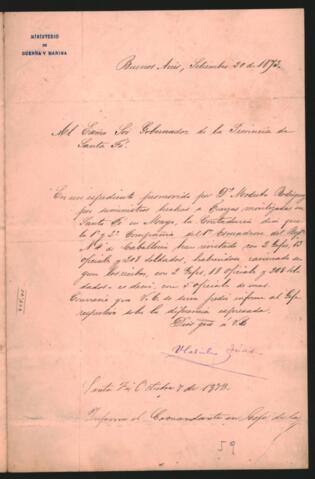 MINISTERIO
DE
GUERRA Y MARINA
Buenos Aires, Setiembre 20 de 187
Al Exmo Sor Gobernador de la Provincia de
Santa Fé.
En un espediente promovido por Dn Modesto Rodriguez
por suministros hechos a Guardias movilizadas en
Santa Fé en Mayo, la Contaduria dice que
la 1ª y 2ª Compañia del 1er Escuadron del Regto
Nº 4 de Caballeria han revistado con 2 Gefes, 13
oficiales y 208 soldados, habiendose racionado se
gun los recibos, con 2 Gefes, 18 oficiales y 208 sol
dados, es decir, con 5 oficiales de mas.
Convenia que V.E. se sirva pedir informe al Gefe
respectivo sobre la diferencia espresada.
Dios gue á V.E.
Santa Fé Octubre 7 de 1873.
Informe el Comandante en Gefe de la
59